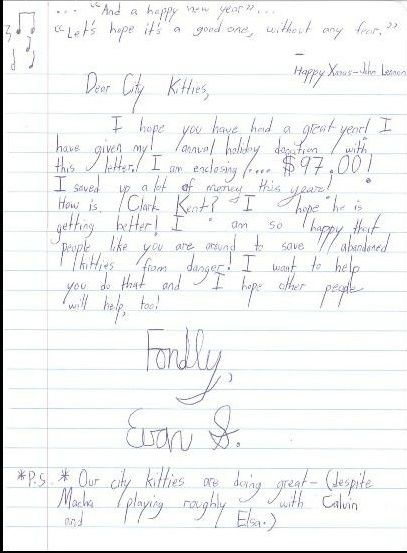 ... "And a happy new year"...
"Let's hope it's a good one, without any fear."
—
Happy Xmas—John Lennon
Dear City Kitties,
I hope you have had a great year! I
have given my annual holiday donation with
this letter! I am enclosing.... $97.00!
I saved up a lot of money this year!
How is "Clark Kent?" I hope he is
getting better! I am so happy that
people like you are around to save abandoned
kitties from danger! I want to help
you do that and I hope other people
will help, too!
Fondly,
Evan S.
*P.S.* Our city kitties are doing great— (despite
Macha playing roughly with Calvin
and Elsa.)